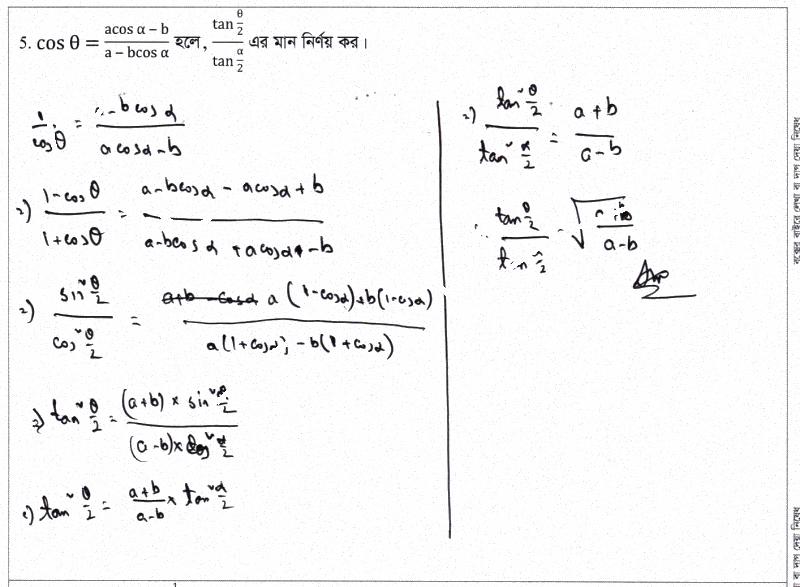 5. cos θ = (acos α − b)/(a − bcos α) হলে, (tan θ/2)/(tan α/2) এর মান নির্ণয় কর।
1/cosθ = -bcosα/(acosα-b)
(1-cosθ)/(1+cosθ) = (a-bcosα - acosα+b)/(a-bcosα+acosα-b)
sin²θ/2 / cos²θ/2 = a(1-cosα)+b(1-cosα) / a(1+cosα)-b(1+cosα)
⇒ tan²θ/2 = (a+b)× sin² /2 / (a-b)×cos²α/2
tan²θ/2 = (a+b)/(a-b) × tan²α/2
tan²θ/2 / tan²α/2 = (a+b)/(a-b)
∴ tan θ/2 / /2 = √( /(a-b))
Ans
বক্সের বাইরে লেখা বা দাগ দেয়া নিষেধ
বা দাগ দেয়া নিষেধ
1